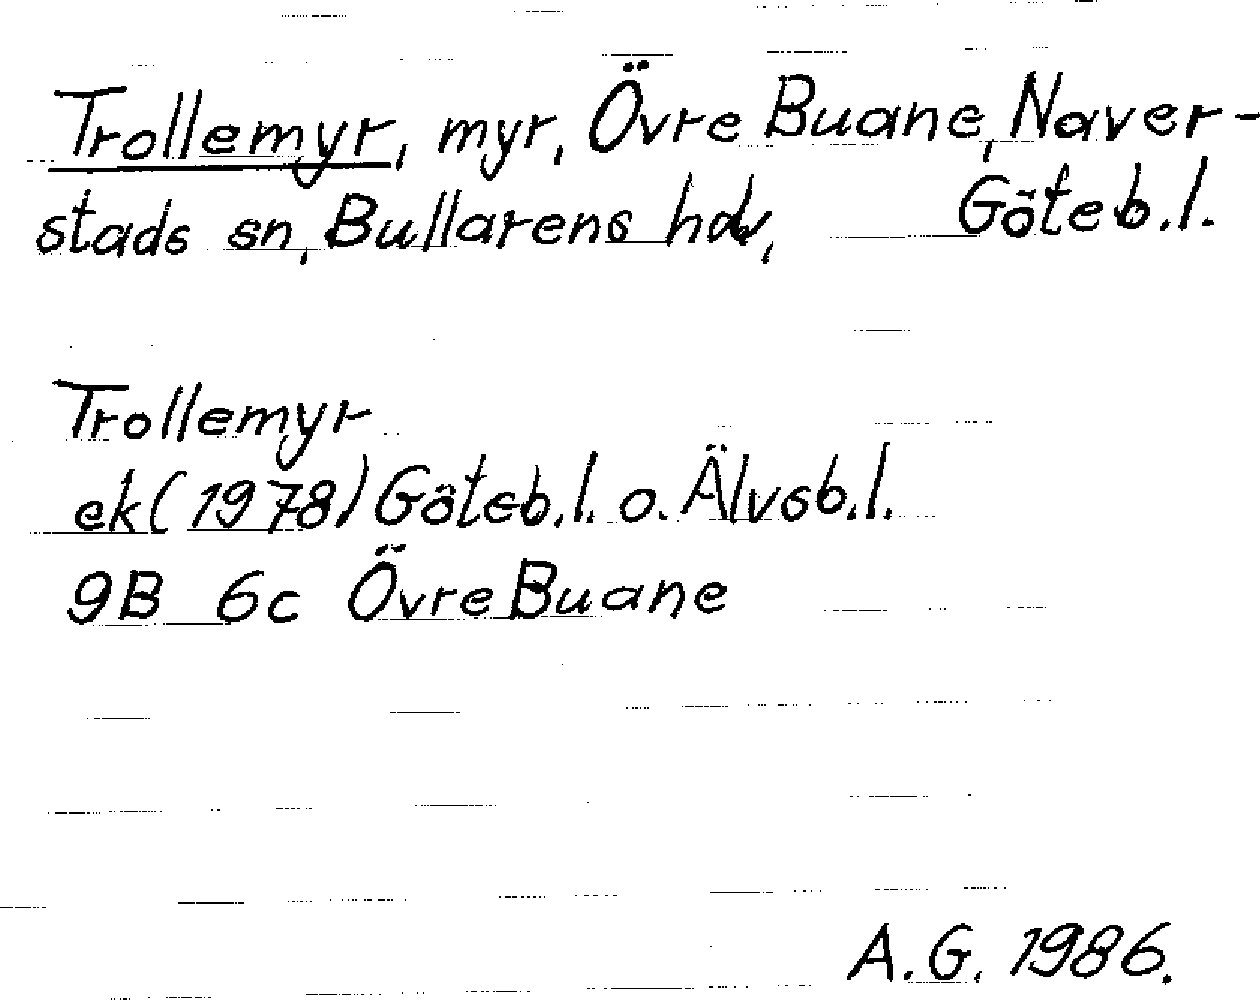 Trollemyr, myr, Övre Buane, Naver-
stads sn, Bullarens hdv, Göteb.l.
Trollemyr
ek (1978) Göteb.l. o. Älvsb.l.
9B 6c Övre Buane
A.G. 1986.